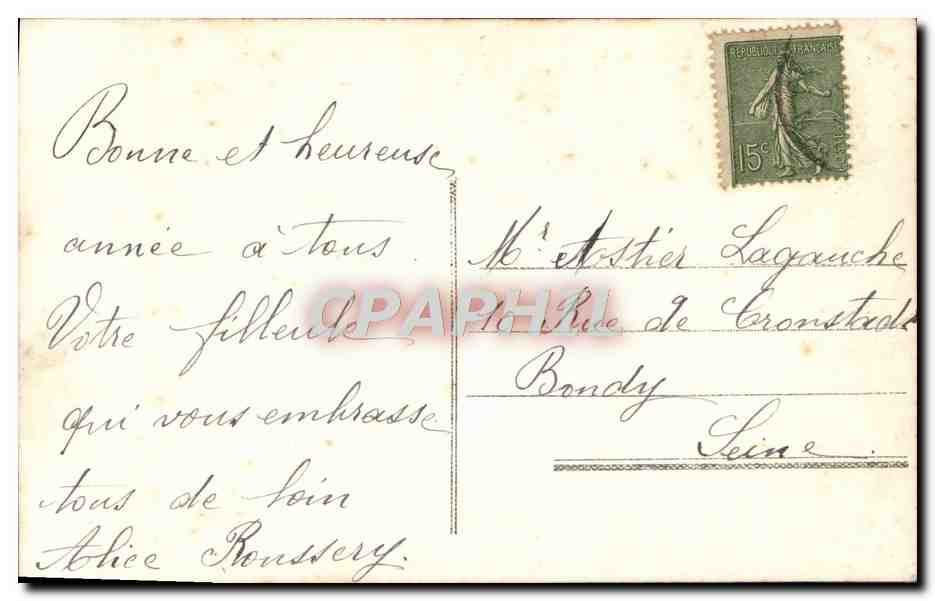 Bonne et heureuse
année à tous.
Votre filleule
qui vous embrasse
tous de loin
Alice Roussery.
REPUBLIQUE FRANÇAISE
15c
Mr Astier Lagauche
10 Rue de Cronstadt
Bondy
Seine.
CPAPHIL